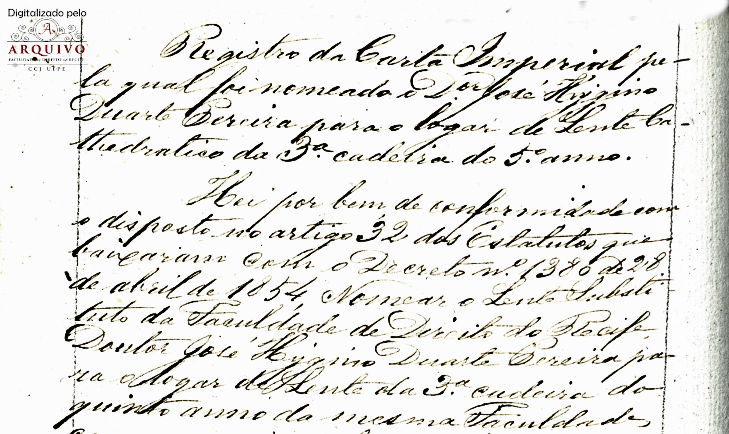 Digitalizado pelo
A
ARQUIVO
FACULDADE DE DIREITO DO RECIFE
CCJ UFPE
Registro da Carta Imperial pe-
la qual foi nomeado o Dor José Hygino
Duarte Pereira para o logar de Lente Ca-
thedratico da 3ª cadeira do 5º anno.
Hei por bem de conformidade com
o disposto no artigo 32 dos Estatutos que
baixaram com o Decreto nº 1386 de 28
de abril de 1854, Nomear o Lente Substi-
tuto da Faculdade de Direito do Recife
Doutor José Hygino Duarte Pereira pa-
ra o logar de Lente da 3ª cadeira do
quinto anno da mesma Faculdade,